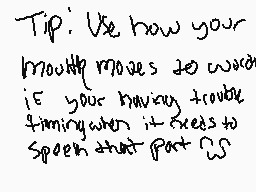 Tip: Use how your
mouth moves to word
if your having trouble
timing when it needs to
speek that part